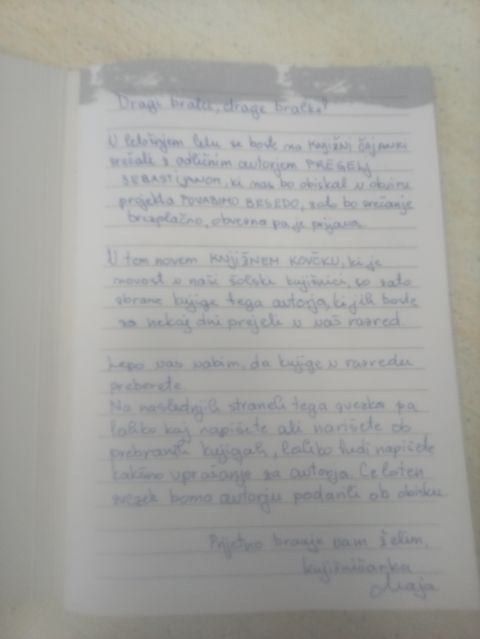 Dragi bralci, drage bralke!
V letošnjem letu se boste na KNJIŽNI ČAJANKI
srečali z odličnim avtorjem PREGELJ
SEBASTIJANOM, ki nas bo obiskal v okviru
projekta POVABIMO BESEDO, zato bo srečanje
brezplačno, obvezna pa je prijava.
V tem novem KNJIŽNEM KOVČKU, ki je
novost v naši šolski knjižnici, so zato
zbrane knjige tega avtorja, ki jih boste
za nekaj dni prejeli v vaš razred.
Lepo vas vabim, da knjige v razredu
preberete.
Na naslednjih straneh tega zvezka pa
lahko kaj napišete ali narišete ob
prebranih knjigah, lahko tudi napišete
kakšno vprašanje za avtorja. Celoten
zvezek bomo avtorju podarili ob obisku.
Prijetno branje vam želim,
knjižničarka
Maja